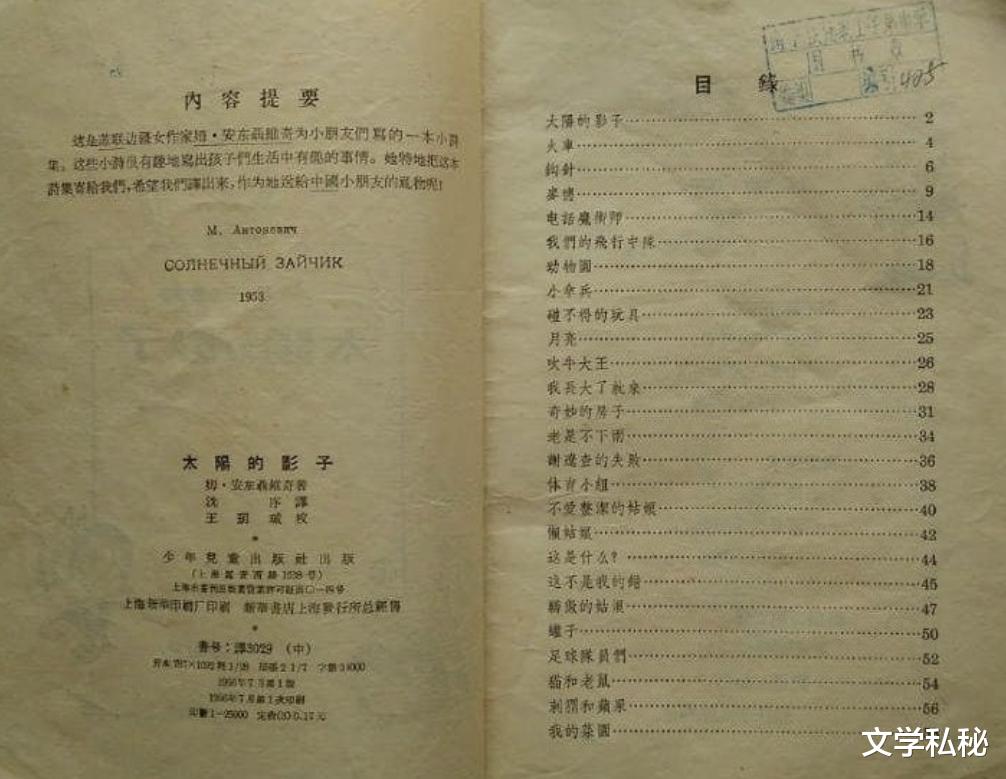 內容提要
这是苏联边疆女作家姆·安东聶維奇为小朋友們寫的一本小詩
集。这些小詩很有趣地寫出孩子們生活中有趣的事情。她特地把这本
詩集寄給我們，希望我們譯出來，作为她送給中國小朋友的礼物呢！
М. Антоневич
СОЛНЕЧНЫЙ ЗАЙЧИК
1953
太陽的影子
姆·安东聶維奇著
沈 序譯
王 玥 珹 校
少年兒童出版社出版
(上海延安西路1538号)
上海市書刊出版業營業許可証出〇一四号
上海新華印刷厂印刷 新華書店上海發行所总經售
書号：譯3029 (中)
开本 787×1092 耗 1/28 印張 2 1/7 字數 34000
1956年7月第1版
1956年7月第1次印刷
印數 1-25000 定价(3) 0.17元
目錄
太陽的影子 2
火車 4
鈎針 6
麥穗 9
电話魔術師 14
我們的飛行中隊 16
动物園 18
小傘兵 21
碰不得的玩具 23
月亮 25
吹牛大王 26
我長大了就來 28
奇妙的房子 31
老是不下雨 34
謝遼查的失敗 36
体育小組 38
不爱整潔的姑娘 40
懶姑娘 42
这是什么? 44
这不是我的錯 45
驕傲的姑娘 47
罐子 50
足球隊員們 52
猫和老鼠 54
刺猬和蘋果 56
我的菜園
425
文学私秘